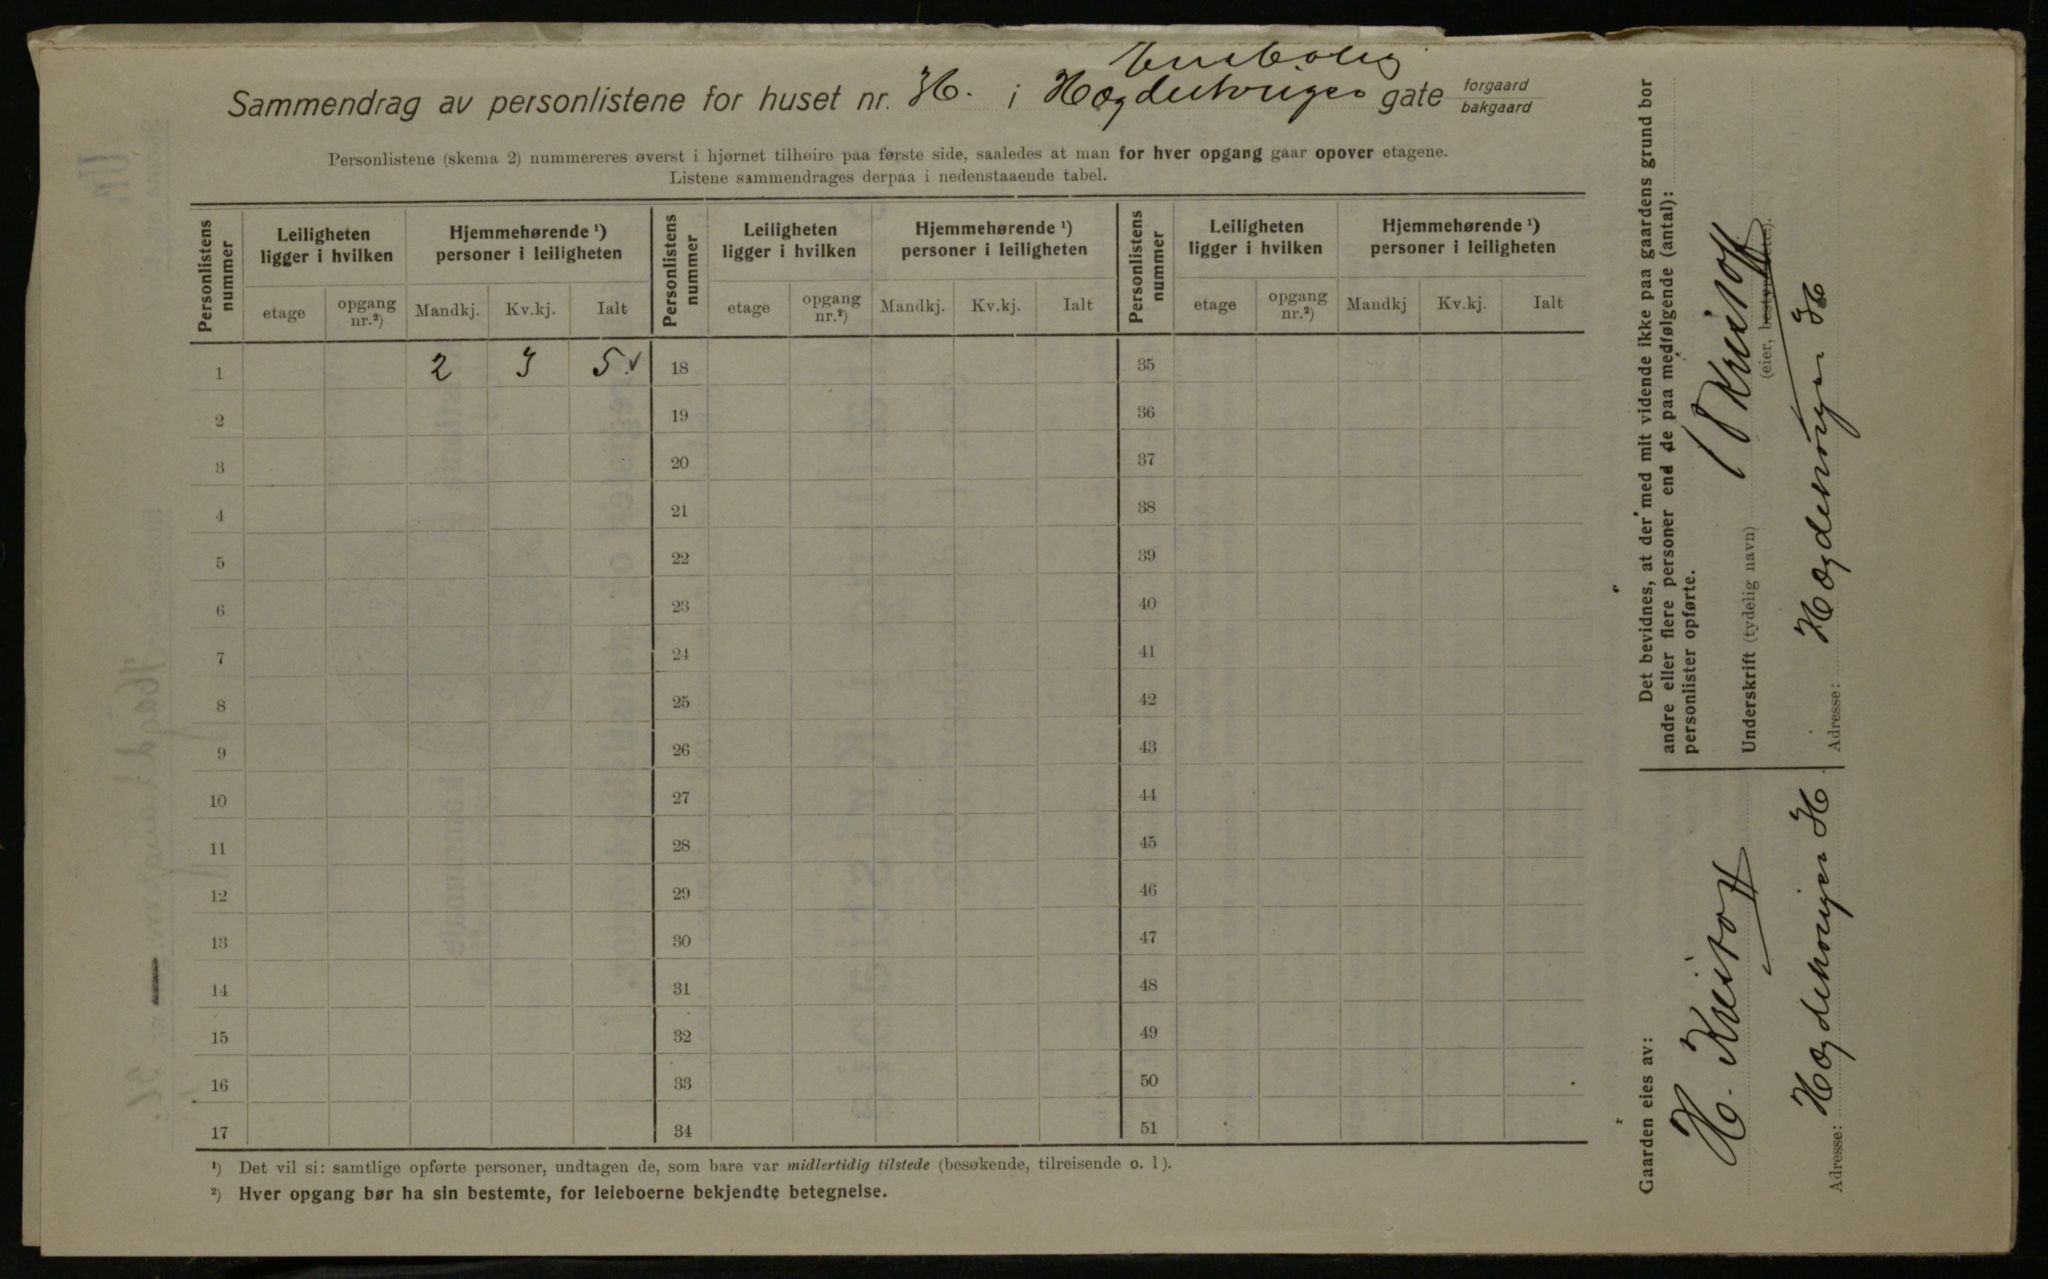 Sammendrag av personlistene for huset nr. H. i Hægdehougen gate forgaard
bakgaard
Personlistene (skema 2) nummereres øverst i hjørnet tilhøire paa første side, saaledes at man for hver opgang gaar opover etagene.
Listene sammendrages derpaa i nedenstaaende tabel.
Personlistens nummer Leiligheten ligger i hvilken Hjemmehørende ¹) personer i leiligheten Personlistens nummer Leiligheten ligger i hvilken Hjemmehørende ¹) personer i leiligheten Personlistens nummer Leiligheten ligger i hvilken Hjemmehørende ¹) personer i leiligheten
etage opgang nr.²) Mandkj. Kv.kj. Ialt etage opgang nr.²) Mandkj. Kv.kj. Ialt etage opgang nr.²) Mandkj Kv.kj. Ialt
1 2 3 5 18 35
2 19 36
3 20 37
4 21 38
5 22 39
6 23 40
7 24 41
8 25 42
9 26 43
10 27 44
11 28 45
12 29 46
13 30 47
14 31 48
15 32 49
16 33 50
17 34 51
¹) Det vil si: samtlige opførte personer, undtagen de, som bare var midlertidig tilstede (besøkende, tilreisende o. l).
²) Hver opgang bør ha sin bestemte, for leieboerne bekjendte betegnelse.
Det bevidnes, at der med mit vidende ikke paa gaardens grund bor
andre eller flere personer end de paa medfølgende (antal):
personlister opførte.
Underskrift (tydelig navn)
(eier, bestyrer etc.).
Adresse: Hægdehougen H
Gaarden eies av:
H. Kristoff
Adresse: Hægdehougen H